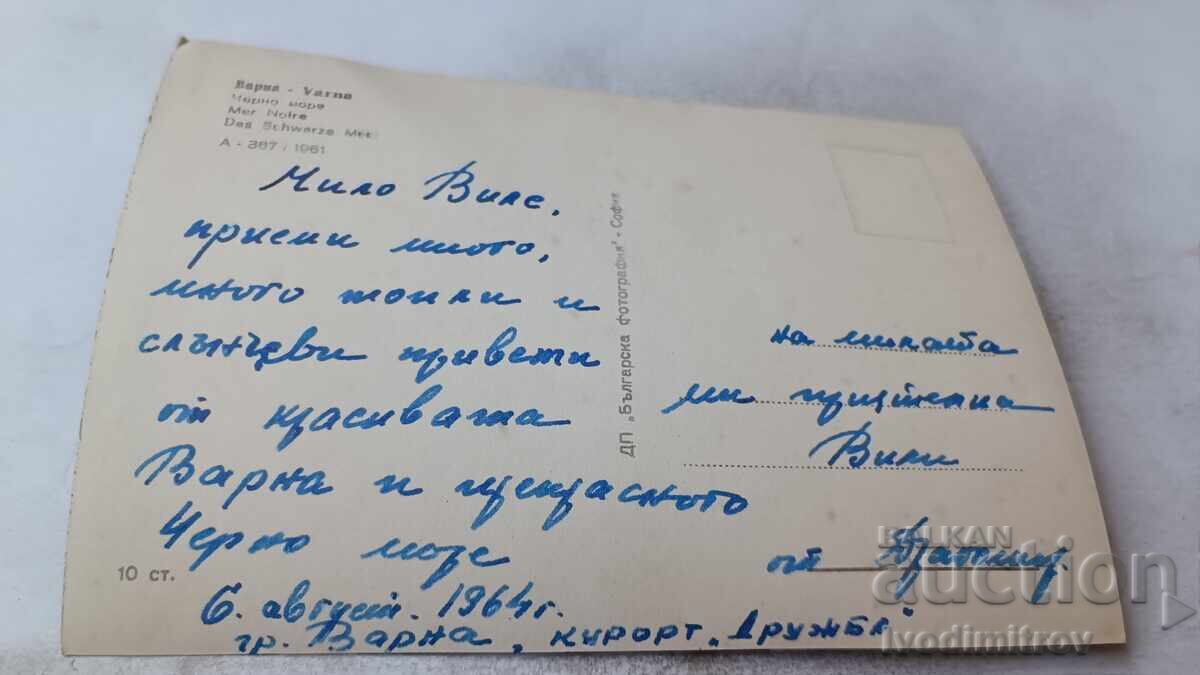 Варна - Varna
Черно море
Mer Noire
Das Schwarze Meer
А - 367 / 1961
Мило Виле,
приеми много,
много топли и
слънчеви привети
от красивата
Варна и прекрасното
Черно море
6. август. 1964 г.
гр. Варна, курорт „Дружба"
10 ст.
ДП „Българска фотография" - София
на милата
ми приятелка
Вили
от
BALKAN
auction
ivodimitrov